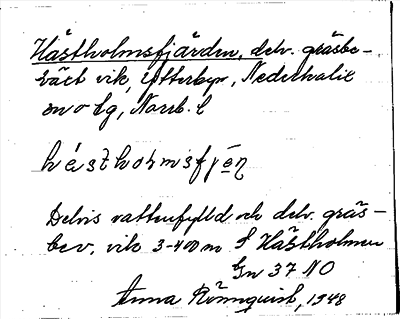 Hästholmsfjärden, delv. gräsbe-
växt vik, Ytterbyn, Nederkalix
sn o tg, Norrb. l
hésthoɿmsfjén
Delvis vattenfylld och delv. gräs-
bev. vik 3-400 m S Hästholmen
Gn 37 NO
Anna Rönnquist, 1948